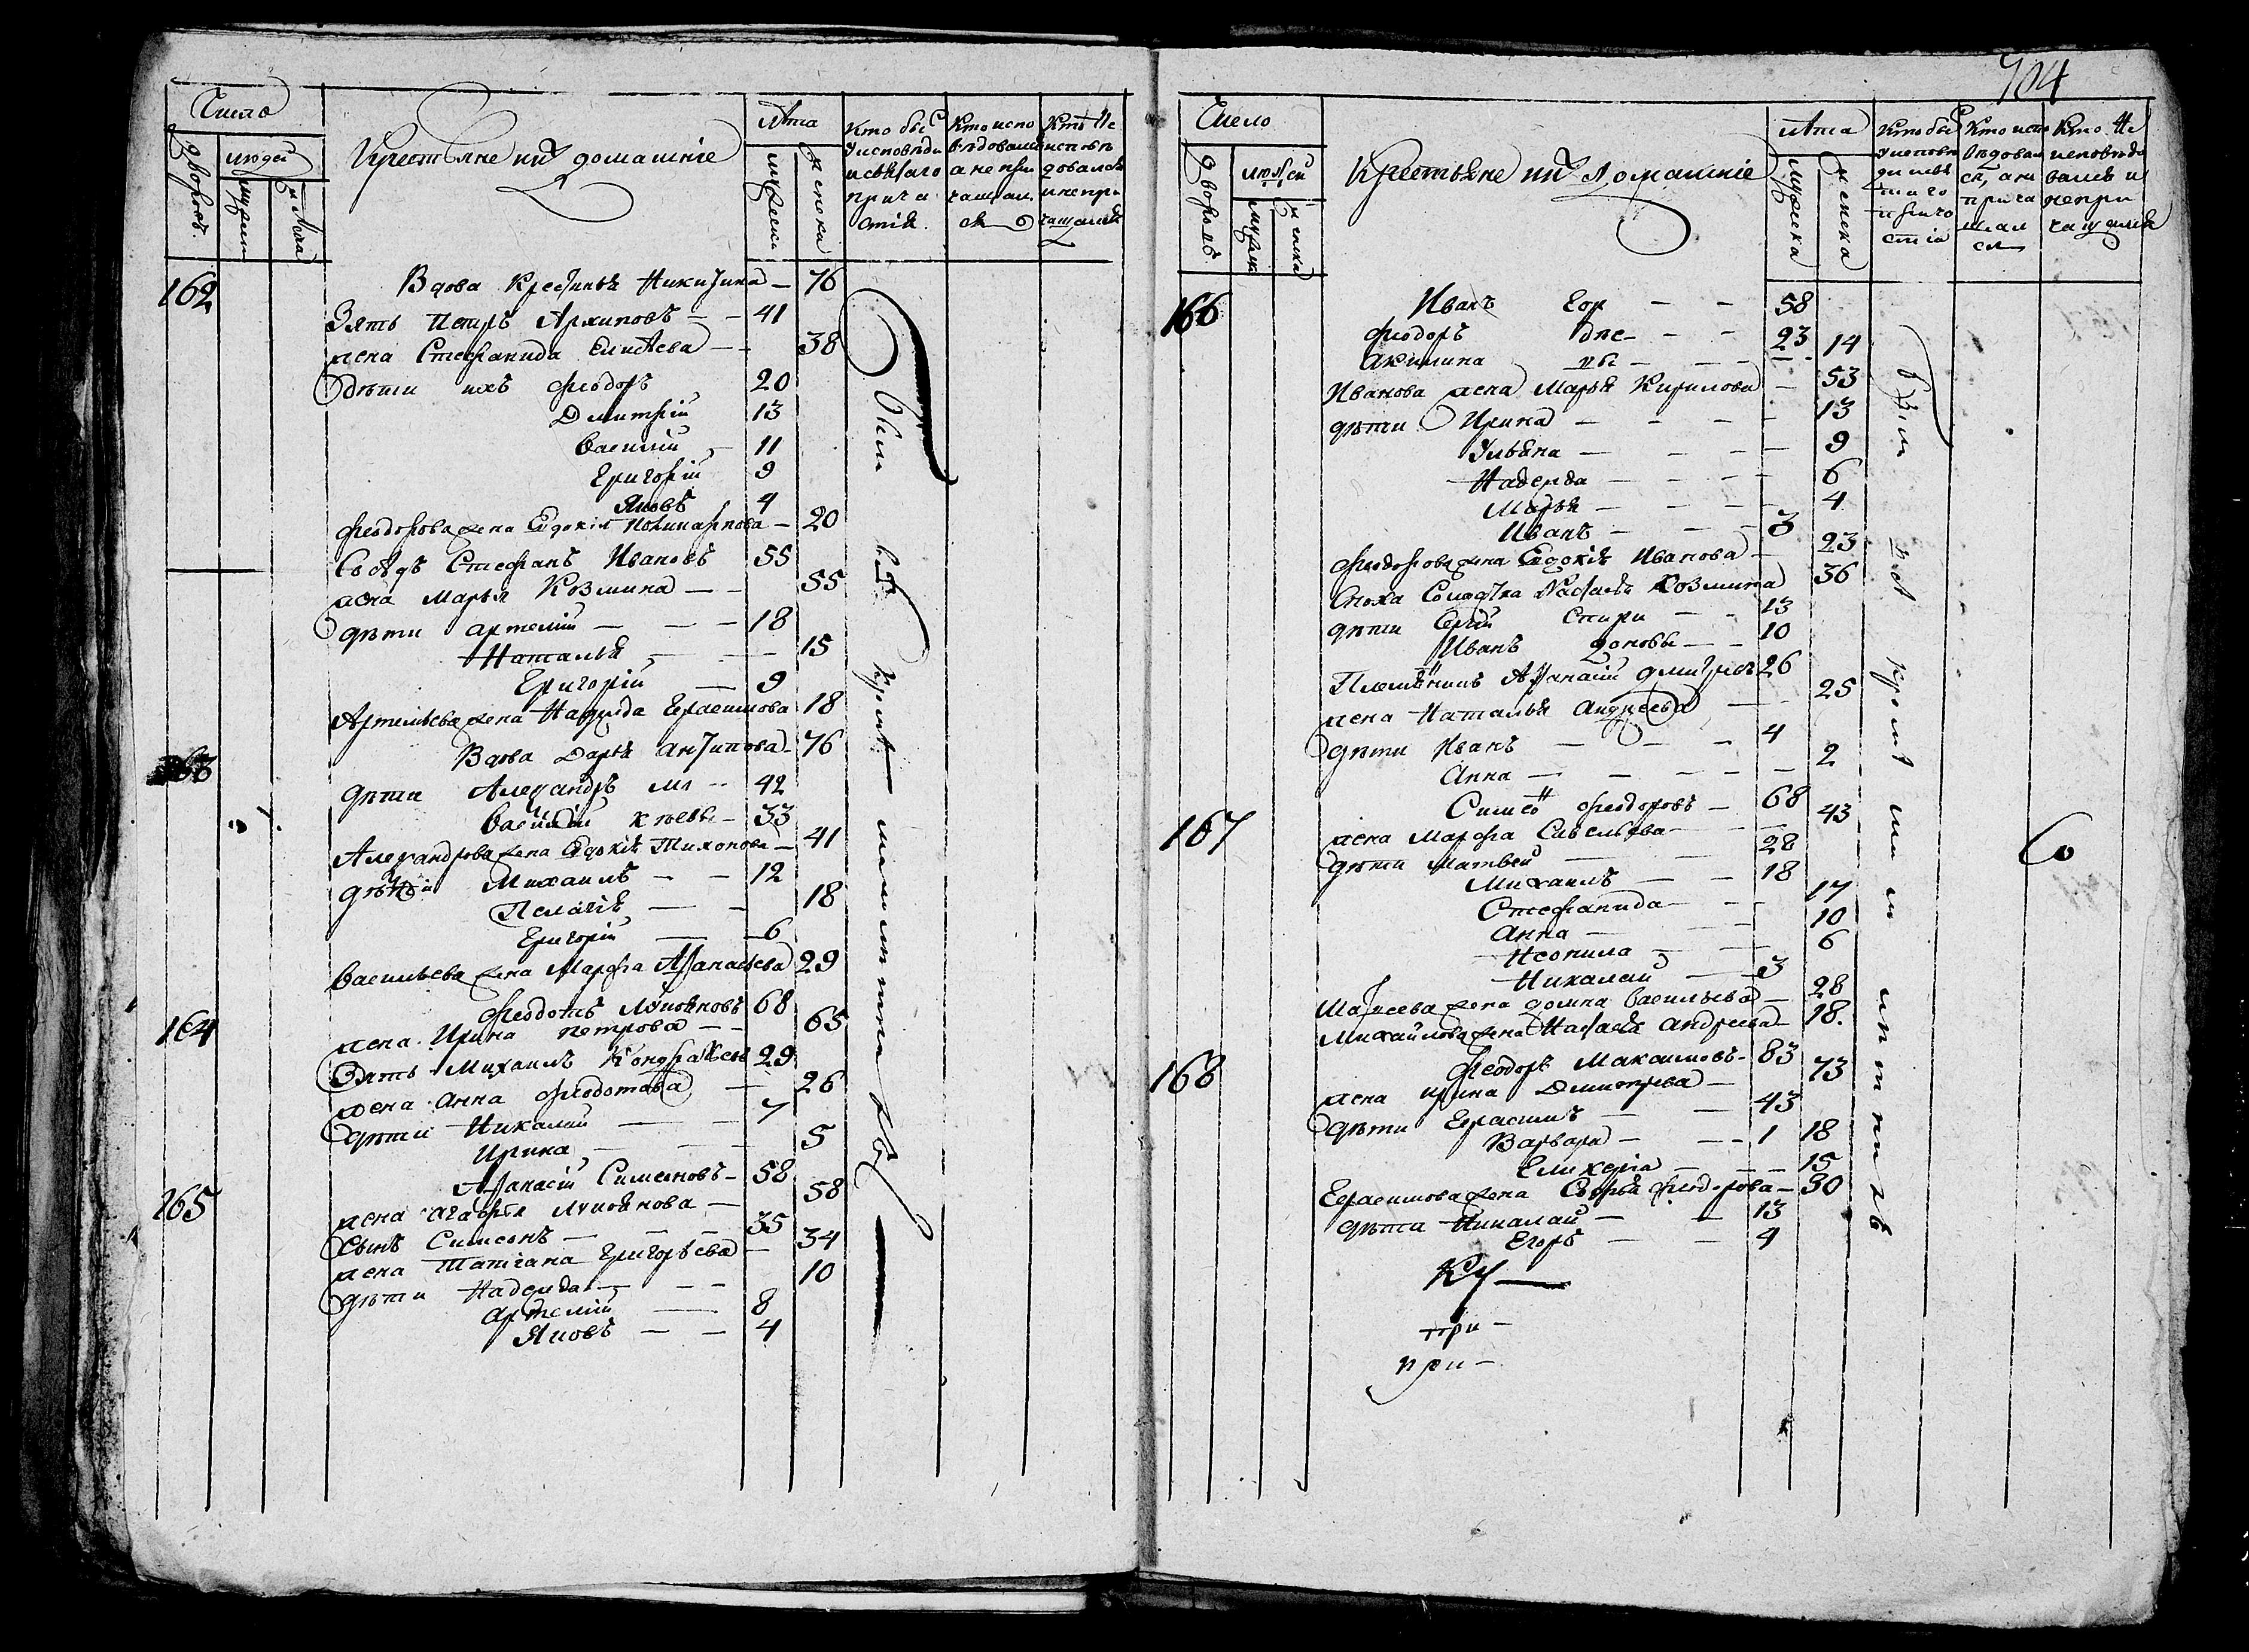 Число
дворовъ
людей
Крестьяне и ихъ домашніе
Лѣта
мужеска
женска
Кто былъ у исповѣди и святаго причастія.
Кто исповѣдовался а не причащался
Кто не исповѣдовался и не причащался
162 Вдова Кресіинья Никитина — 76
Зять Петръ Архиповъ — — 41
жена Стефанида Елисѣева — — 38
дѣти ихъ Ѳеодоръ 20
Димитрій 13
Василій — 11
Григорій 9
Яковъ 4
Ѳеодорова жена Евдокія Поликарпова — 20
Сосѣдъ Стефанъ Ивановъ 55
жена Марья Козмина — — 55
дѣти Артемій — — — 18
Наталья — — — 15
Григорій — 9
Артемьева жена Надежда Герасимова 18
163 Вдова Дарья Антипова — 76
дѣти Александръ — 42
Василій — 33
Александрова жена Евдокія Тихонова — 41
дѣти Михаилъ — — 12
Пелагія — — 18
Григорій — — 6
Васильева жена Марфа Афанасьева 29
164 Ѳеодотъ Лукьяновъ 68
жена Ирина Петрова — — 65
Зять Михаилъ Кондратьевъ 29
жена Анна Ѳеодотова — 26
дѣти Николай — — 7
Ирина — — — 5
165 Афанасій Симеоновъ — 58
жена Агафья Лукьянова — 58
Сынъ Симеонъ — — — 35
жена Татіана Григорьева — 34
дѣти Надежда — — — 10
Артемій — 8
Яковъ — — 4
704
Число
дворовъ
людей
Крестьяне и ихъ домашніе
Лѣта
мужеска
женска
Кто былъ у исповѣди и святаго причастія
Кто исповѣдовался, а не причащался
Кто не исповѣдовался и не причащался
166 Иванъ Егор — — 58
Ѳеодоръ — — 23
Акилина — — 14
Иванова жена Марья Кирилова — 53
дѣти Ирина — — — — 13
Ульяна — — — — 9
Надежда — — — — 6
Марья — — — — 4
Иванъ — — — 3
Ѳеодорова жена Евдокія Иванова — 23
Сноха Солдатка Наталья Козмина 36
дѣти Спири — — 13
Иванъ доновы — — 10
Племянникъ Афанасій Дмитріевъ 26
жена Наталья Андреева — 25
дѣти Иванъ — — — 4
Анна — — — — — 2
167 Симео Ѳеодоровъ — 68
жена Марфа Савельева — — 43
дѣти Матвей — — 28
Михаилъ — — 18
Стефанида — — — 17
Анна — — — 10
Неонила — — 6
Николай — — 3
Матѳеева жена Домна Васильева — 28
Михайлова жена Наталья Андреева — 18.
168 Ѳеодоръ Максимовъ — 83
жена Ирина Димитріева — 73
дѣти Герасимъ — — 43
Варвара — — — 1 18
Гликерія — — — 15
Герасимова жена Софья Ѳеодорова — 30
дѣти Николай — — 13
Егоръ — — 4
при —
при —